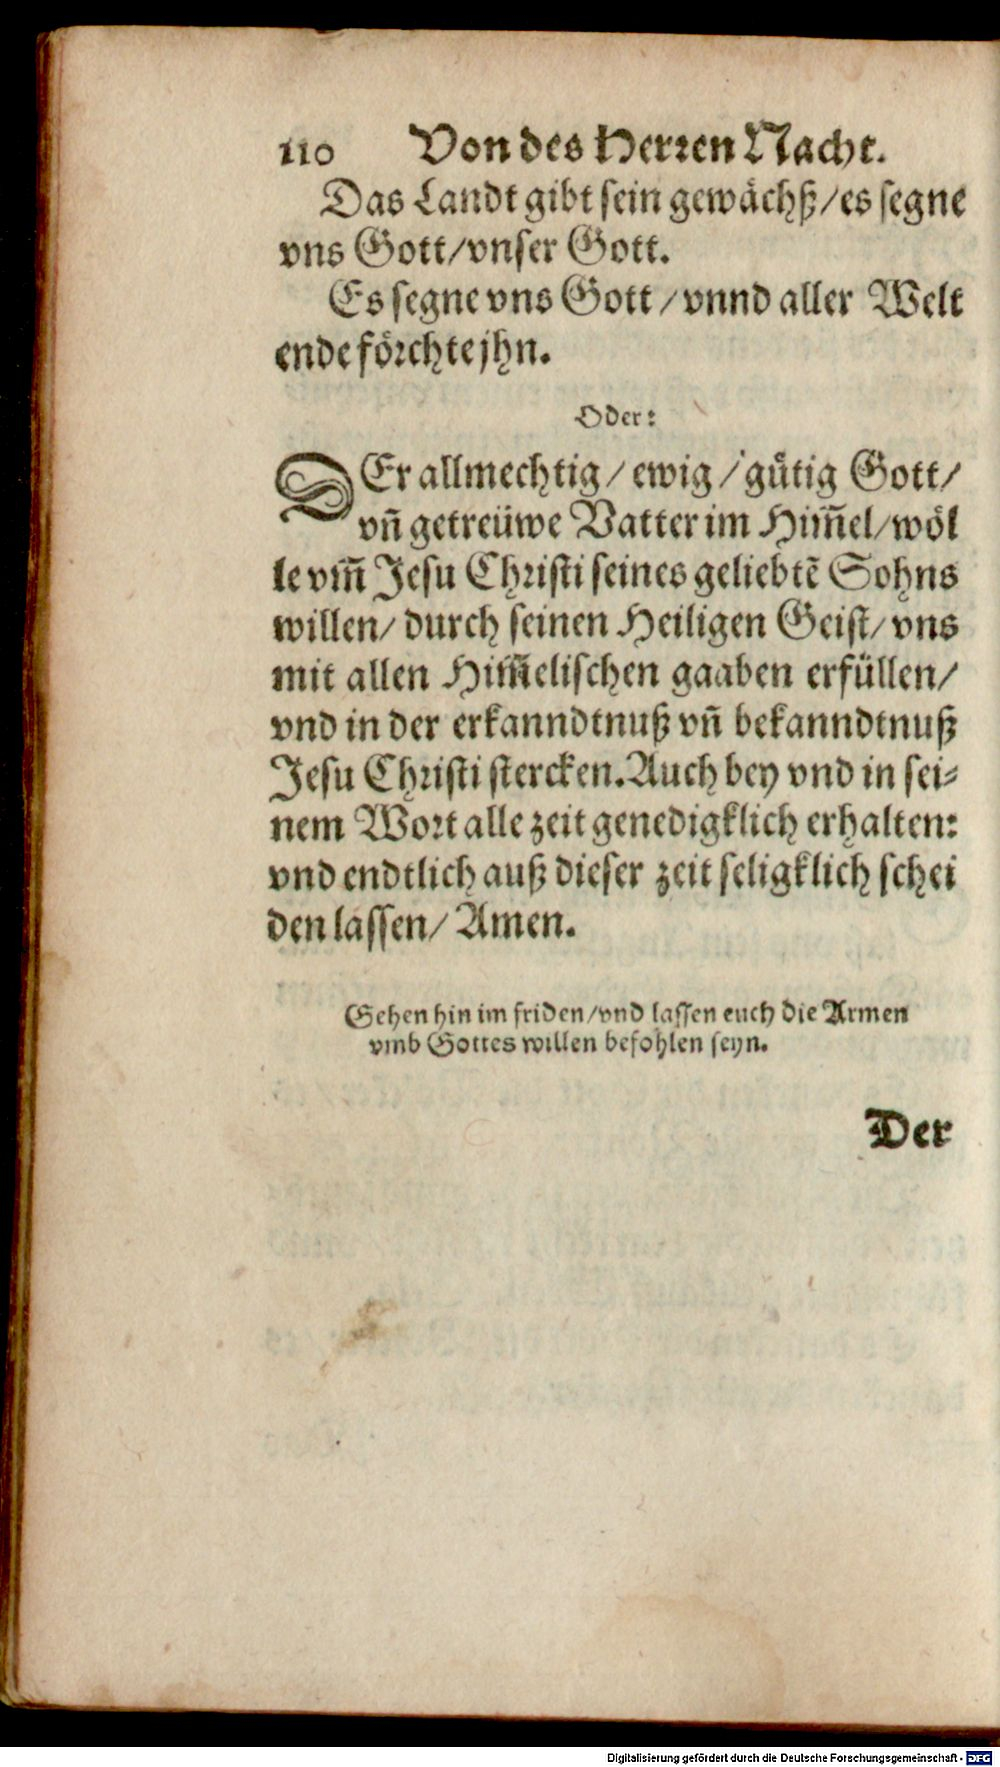 110 Von des Herren Nacht.
Das Landt gibt sein gewächß/es segne
vns Gott/vnser Gott.
Es segne vns Gott/vnnd aller Welt
ende förchte jhn.
Oder:
DEr allmechtig/ewig/gütig Gott/
vñ getreüwe Vatter im Him̄el/wöl
le vm̄ Jesu Christi seines geliebtẽ Sohns
willen/durch seinen Heiligen Geist/vns
mit allen Him̄elischen gaaben erfüllen/
vnd in der erkanndtnuß vñ bekanndtnuß
Jesu Christi stercken. Auch bey vnd in sei-
nem Wort alle zeit genedigklich erhalten:
vnd endtlich auß dieser zeit seligklich schei
den lassen/Amen.
Gehen hin im friden/vnd lassen euch die Armen
vmb Gottes willen befohlen seyn.
Der
Digitalisierung gefördert durch die Deutsche Forschungsgemeinschaft - DFG